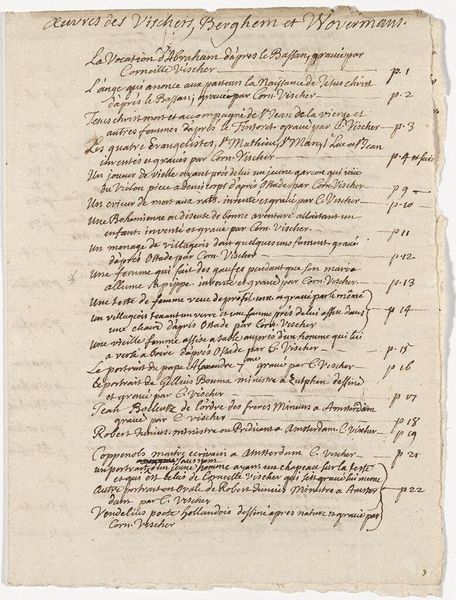 Œuvres des Vischers, Berghem et Wovermans.
La Vocation d'Abraham d'apres le Bassan, gravée par
Corneille Vischer p. 1
L'ange qui anonce aux pasteurs la Naissance de Jesus christ
d'après le Bassan, gravé par Corn. Vischer p. 2
Jesus christ mort et accompagné de St Jean de la vierge et
autres femmes d'après le Tintoret gravé par C. Vischer p. 3
Les quatre Evangelistes, St Mathieu, St Marc, St Luc et St Jean
inventés et gravés par Corn. Vischer p. 4 et suiv
Un joueur de vielle ayant près de lui un jeune garçon qui joue
du Violon piece a demi corps d'après Ostade par Corn. Vischer p. 9
Un crieur de mort aux rats, inventé et gravé par C. Vischer p. 10
Une Bohemienne ou diseuse de bonne aventure allaitant un
enfant. inventé et gravé par Corn. Vischer. p. 11
Un menage de villageois dont quelques uns fument gravé
d'après Ostade par Corn. Vischer p. 12
Une femme qui fait des gaufres pendant que son mari
allume sa pippe inventé et gravé par Corn. Vischer p. 13
Une teste de femme veue de profil inv. et gravé par le même
un villageois tenant un verre et une femme près de lui assise dans
une chaire d'après Ostade par Corn. Vischer p. 14
Une vieille femme assise a table auprès d'un homme qui lui
a versé a boire d'après Ostade par C. Vischer p. 15
Le portrait du pape Alexandre 7eme gravé par C. Vischer p. 16
Le portrait de Gellius Bouma ministre a Zutphen dessiné
et gravé par C. Vischer p. 17
Jean de l'ordre des freres Mineurs a Amsterdam
gravé par C. Vischer p. 18
Robert Junius, ministre ou Predicant a Amsterdam C. Vischer p. 19
Coppenols maitre ecrivain a Amsterdam C. Vischer p. 21
un portrait sans nom d'un jeune homme ayant un chapeau sur la teste
et qui est celui de Corneille Vischer qui s'est gravé lui meme
Autre portrait en Ovale de Robert Junius Ministre a Amster
dam par C. Vischer p. 22
Vondelius poete hollandois dessiné apres nature et gravé par
Corn. Vischer